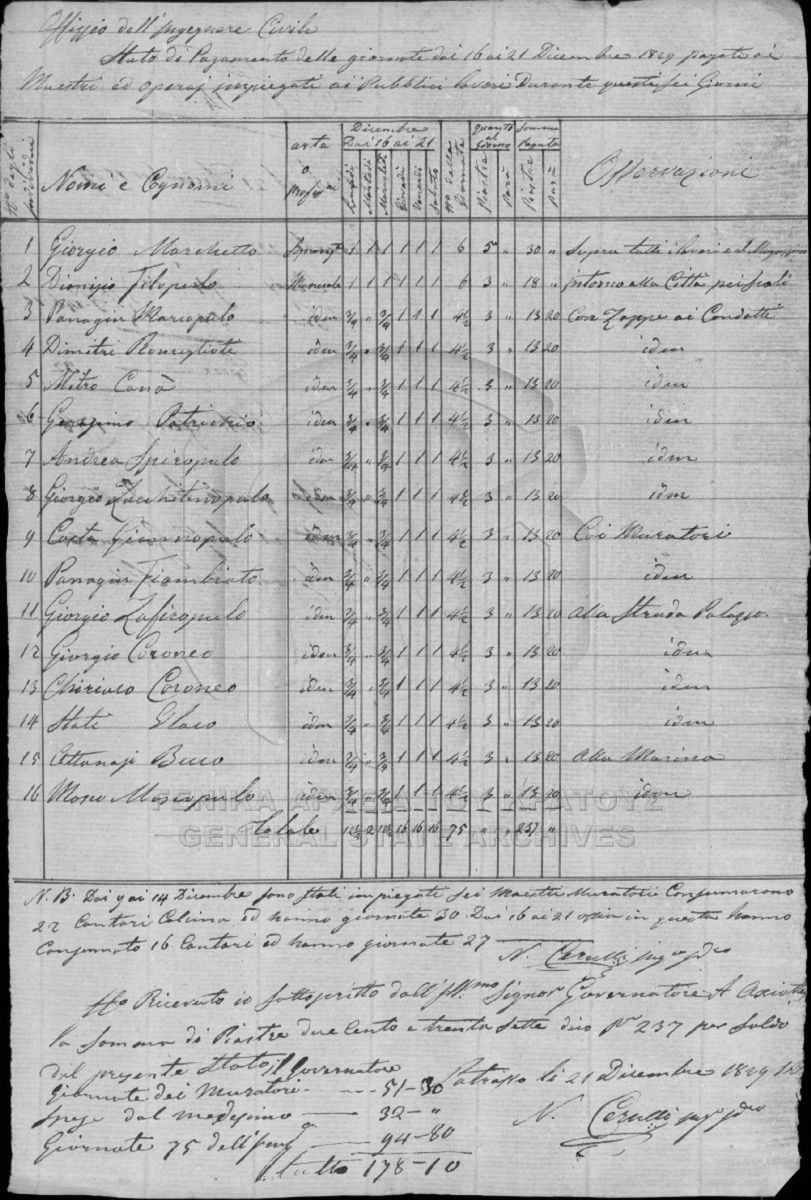 Offizio dell'Ingegnere Civile
Stato di Pagamento delle giornate dai 16 ai 21 Dicembre 1829 pagate ai
Maestri ed operaj impiegati ai Pubblici lavori Durante questi sei Giorni
No degli Nomi e Cognomi arte o Dicembre Dai 16 ai 21 Lunedi Martedi Mercoledi Giovedi Venerdi Sabato No delle Giornate quanto al Giorno Piastre Parà Somma Pagata Piastre Parà Osservazioni
1 Giorgio Marchetto 1 1 1 1 1 1 6 5 " 30 " Sopra tutti i lavori e il Magazzeno
2 Dionisio Filopulo Manuale 1 1 1 1 1 1 6 3 " 18 " Intorno alla Città pei scoli
3 Panagin Marcopulo idem 3/4 " 3/4 1 1 1 4 1/2 3 " 13 20 Con Zappe ai Condotti
4 Dimitri idem 3/4 " 3/4 1 1 1 4 1/2 3 " 13 20 idem
5 Mitro Canà idem 3/4 " 3/4 1 1 1 4 1/2 3 " 13 20 idem
6 Gerasimo Patrichio idem 3/4 " 3/4 1 1 1 4 1/2 3 " 13 20 idem
7 Andrea Spiropulo idem 3/4 " 3/4 1 1 1 4 1/2 3 " 13 20 idem
8 Giorgio idem 3/4 " 3/4 1 1 1 4 1/2 3 " 13 20 idem
9 Costa Giannopulo idem 3/4 " 3/4 1 1 1 4 1/2 3 " 13 20 Coi Muratori
10 Panagin idem 3/4 " 3/4 1 1 1 4 1/2 3 " 13 20 idem
11 Giorgio idem 3/4 " 3/4 1 1 1 4 1/2 3 " 13 20 Alla Strada Palazzo
12 Giorgio Coroneo idem 3/4 " 3/4 1 1 1 4 1/2 3 " 13 20 idem
13 Chiriaco Coroneo idem 3/4 " 3/4 1 1 1 4 1/2 3 " 13 20 idem
14 Stati Glaco idem 3/4 " 3/4 1 1 1 4 1/2 3 " 13 20 idem
15 Attanasi idem 3/4 " 3/4 1 1 1 4 1/2 3 " 13 20 Alla Marina
16 Mosco Moscopulo idem 3/4 " 3/4 1 1 1 4 1/2 3 " 13 20 idem
ΓΕΝΙΚΑ ΑΡΧΕΙΑ ΤΟΥ ΚΡΑΤΟΥΣ
Totale 12 1/2 2 12 1/2 16 16 16 75 " " 237 "
GENERAL STATE ARCHIVES
N. B. Dai 9 ai 14 Dicembre sono stati impiegati sei Maestri Muratori Consumarono
22 Cantari Calcina ed hanno giornate 30. Dai 16 ai 21 in questa hanno
Consumato 16 Cantari ed hanno giornate 27
N. Cerulli
Ho Ricevuto io sottoscritto dall'Ill.mo Signor Governatore A Axiotti
la Somma di Piastre due Cento e trenta sette dico Pre 237 per Saldo
del presente Stato, il Governatore
Patrasso li 21 Dicembre 1829
Giornate dei Muratori 51-30
Spese dal medesimo 32-"
N. Cerulli
Giornate 75 94-80
tutto 178-10